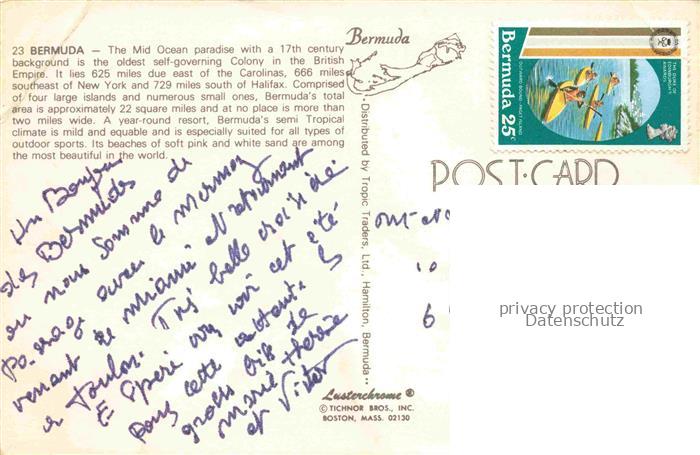 23 BERMUDA — The Mid Ocean paradise with a 17th century
background is the oldest self-governing Colony in the British
Empire. It lies 625 miles due east of the Carolinas, 666 miles
southeast of New York and 729 miles south of Halifax. Comprised
of four large islands and numerous small ones, Bermuda's total
area is approximately 22 square miles and at no place is more than
two miles wide. A year-round resort, Bermuda's semi Tropical
climate is mild and equable and is especially suited for all types of
outdoor sports. Its beaches of soft pink and white sand are among
the most beautiful in the world.
Un Bonjour
des Bermudes
ou nous somme de
passage avec le Mermoz
venant de Miami et retournant
a Toulon. Très belle croisière
E Speré vous voir cet été
pour cette
gros bis de
Marie Thérèse
et Victor
Bermuda
Distributed by Tropic Traders, Ltd., Hamilton, Bermuda
Lusterchrome®
© TICHNOR BROS., INC.
BOSTON, MASS. 02130
THE DUKE OF
EDINBURGH'S
AWARDS
OUTWARD BOUND - PAGET ISLAND
Bermuda 25c
POST-CARD
10
6
privacy protection
Datenschutz